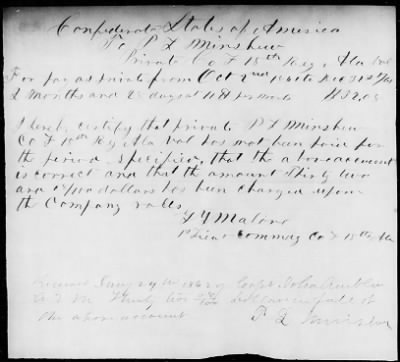 Confederate States of America
To P L Minshew
Private Co F 15th Reg, Ala Vol
For pay as private from Oct 2nd to Dec 31st
2 months and days at 11$ per month $32.05
I hereby certify that private P L Minshew
Co F 15th Reg Ala Vol has not been paid for
the period specified, that the above account
is correct and that the amount thirty two
and 5/100 dollars has been charged upon
the Company rolls
Malone
Lieut Commdg Co F 15th Ala
Received Jany 29th 1862 of Capt
Q M Thirty two 5/100 dollars in full of
the above account P L Minshew